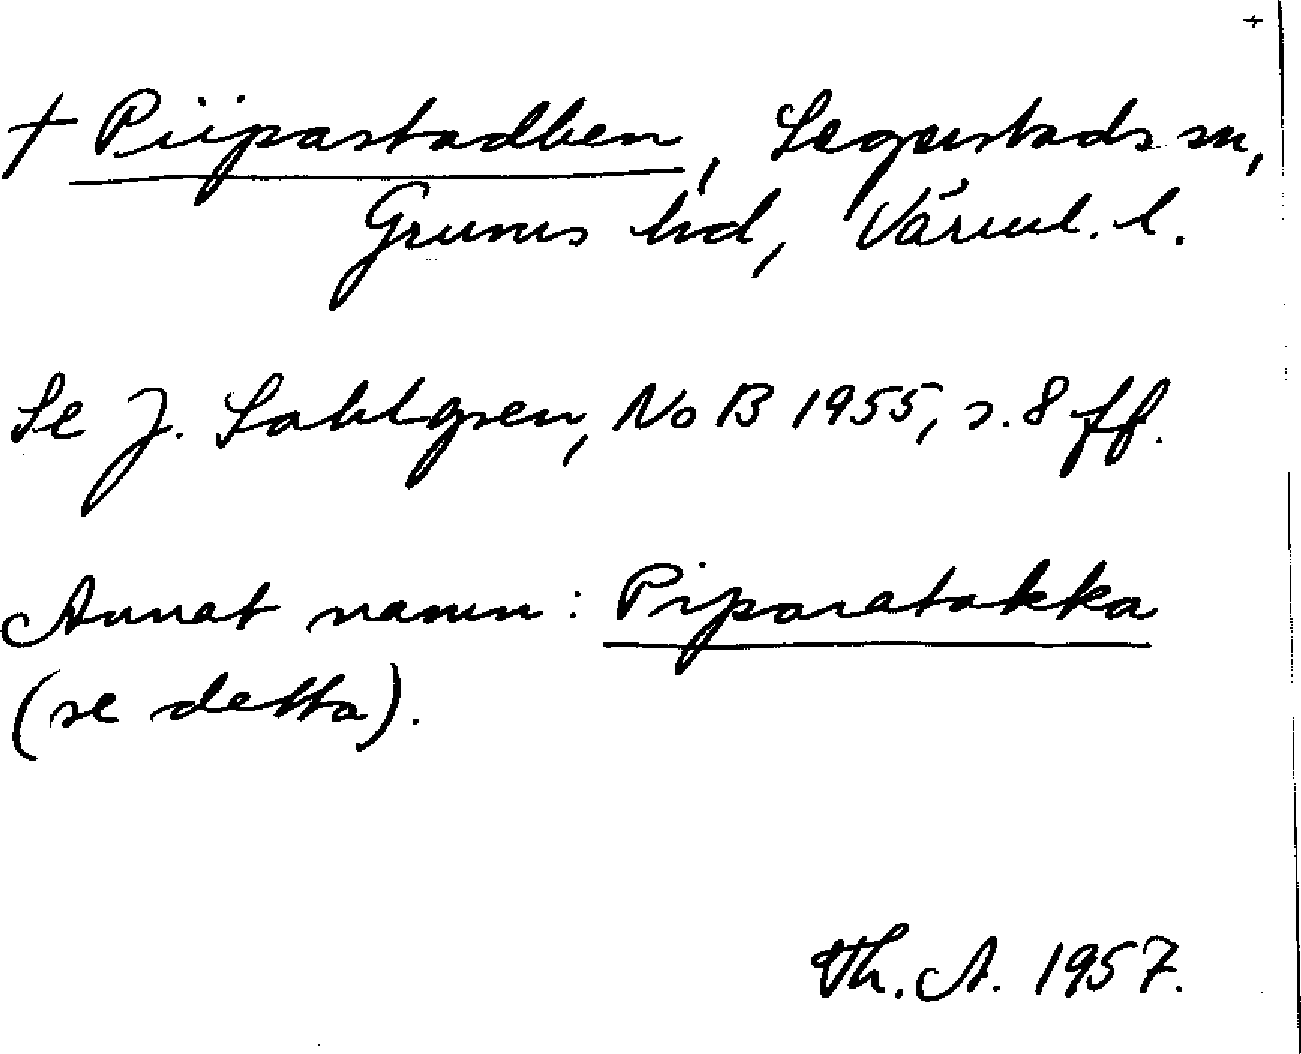 +
† Piipastadben, Segerstads sn,
Grums hd, Värml. l.
Se J. Sahlgren, NoB 1955, s. 8 ff.
Annat namn: Piparatakka
(se detta).
Th. A. 1957.